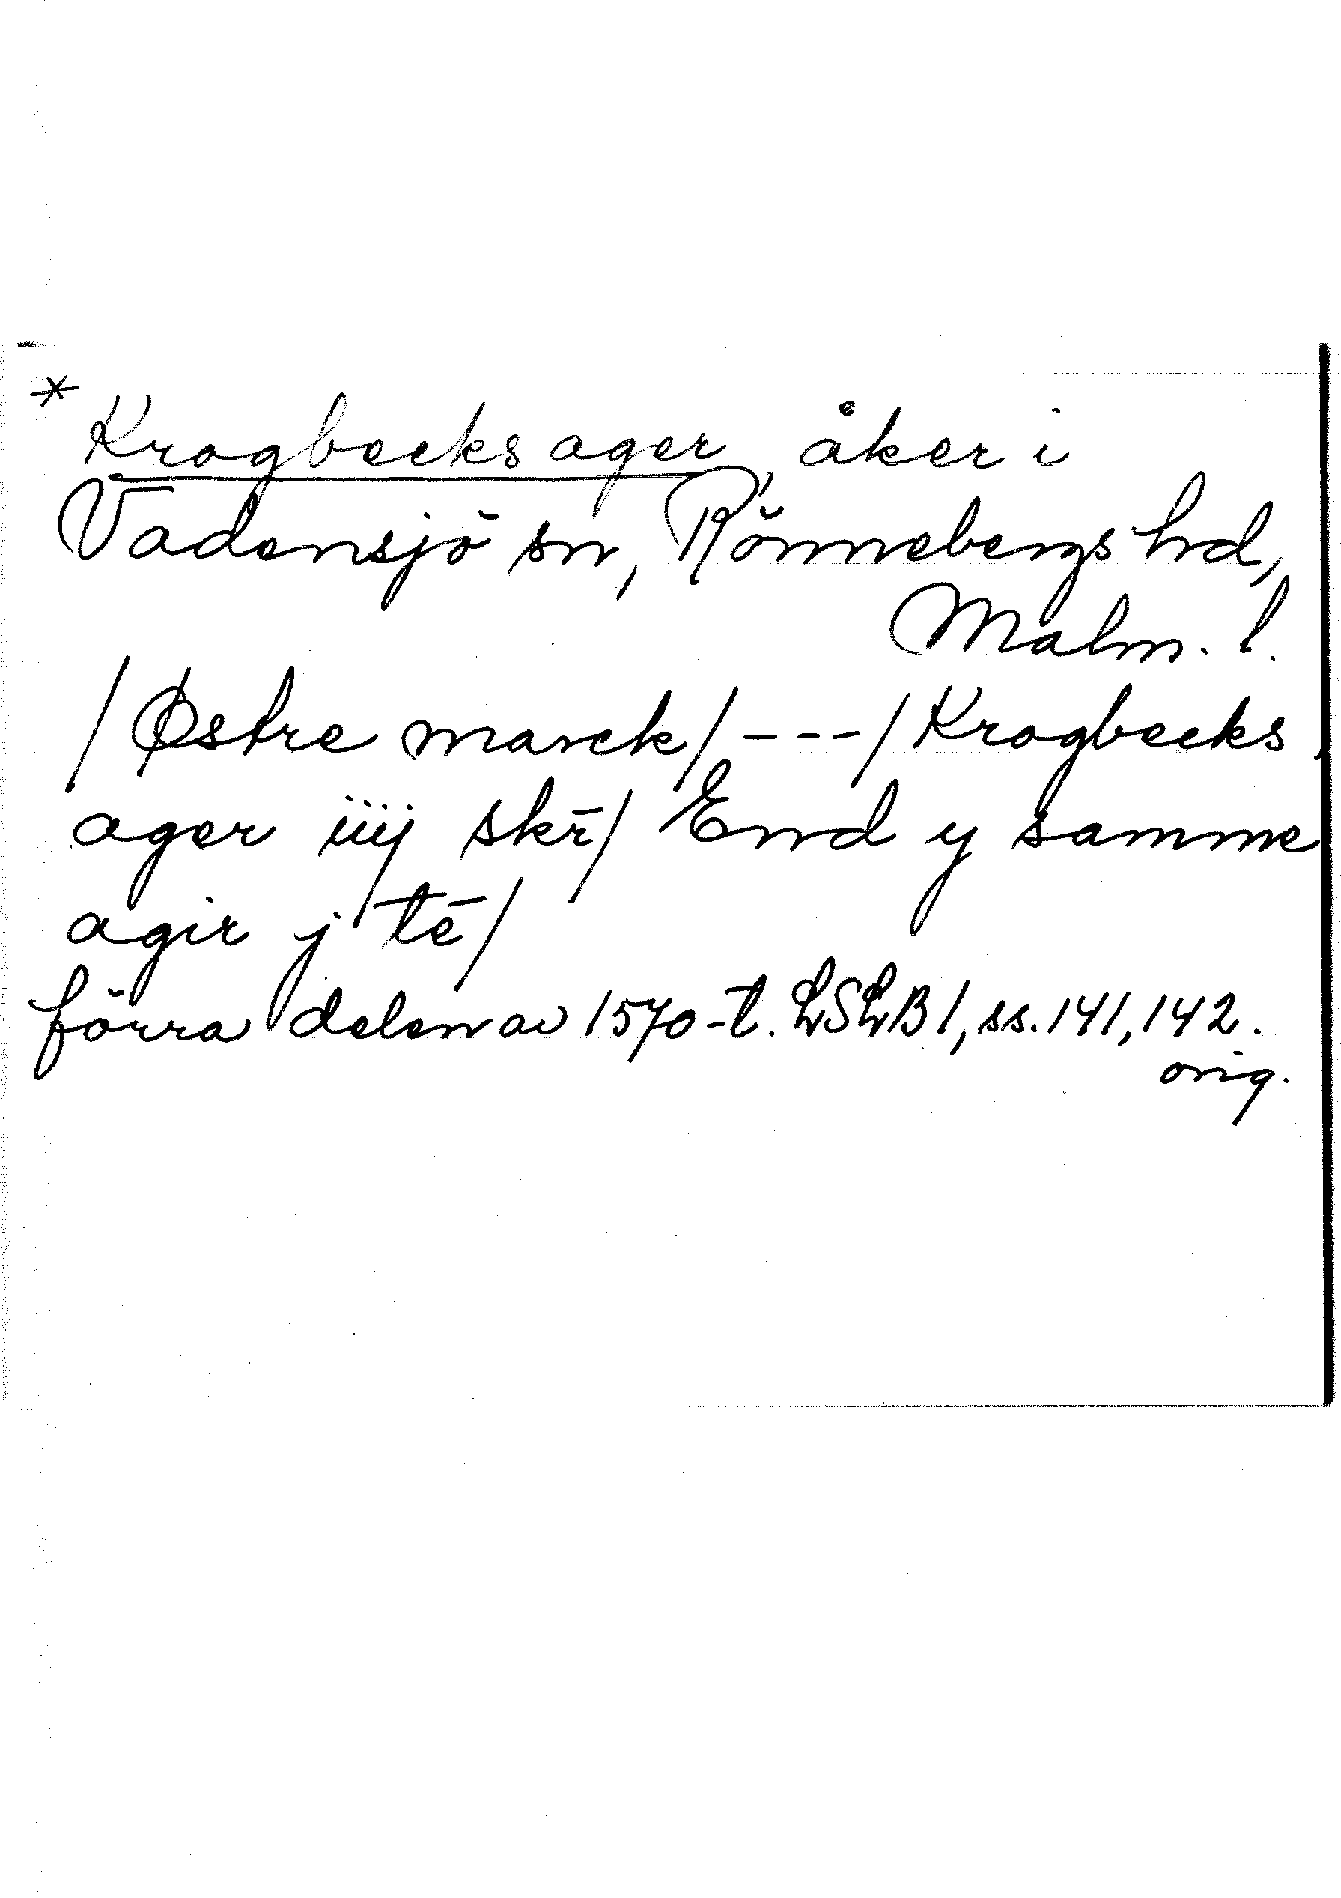 * Krogbecks ager, åker i
Vadensjö sn, Rönnebergs hd,
Malm. l.
/Østre marck/ --- /Krogbecks
ager iiij skr̄/ End y samme
agir j tē/
förra delen av 1570-t. LSLB 1, ss. 141, 142.
orig.